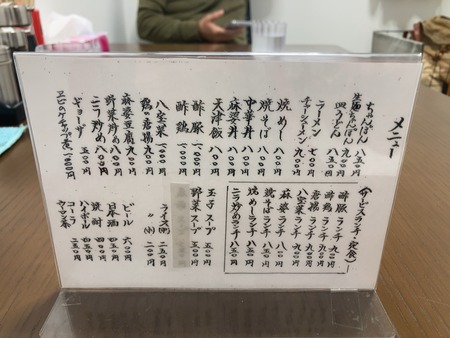 メニュー
ちゃんぽん 八五〇円
皿うどん 九〇〇円
ラーメン 七〇〇円
チャーシューメン 九〇〇円
焼めし 八〇〇円
焼そば 八〇〇円
中華丼 九〇〇円
麻婆丼 八五〇円
天津飯 八〇〇円
酢豚 一〇〇〇円
酢鶏 一〇〇〇円
八宝菜 一〇〇〇円
鶏の唐揚 九〇〇円
麻婆豆腐 九〇〇円
野菜炒め 八〇〇円
ニラ炒め 八〇〇円
ギョーザ
(サービスランチ(定食)
酢豚ランチ 九〇〇円
酢鶏ランチ 九〇〇円
唐揚ランチ 九〇〇円
八宝菜ランチ 九〇〇円
麻婆ランチ 八五〇円
焼そばランチ 八五〇円
焼めしランチ 八五〇円
ニラ炒めランチ 八五〇円
玉子スープ 五〇〇円
野菜スープ 五〇〇円
ライス(中) 二五〇円
〃 (小) 二〇〇円
ビール 六〇〇円
日本酒 四五〇円
焼酎 四五〇円
ハイボール
コーラ
ウーロン茶